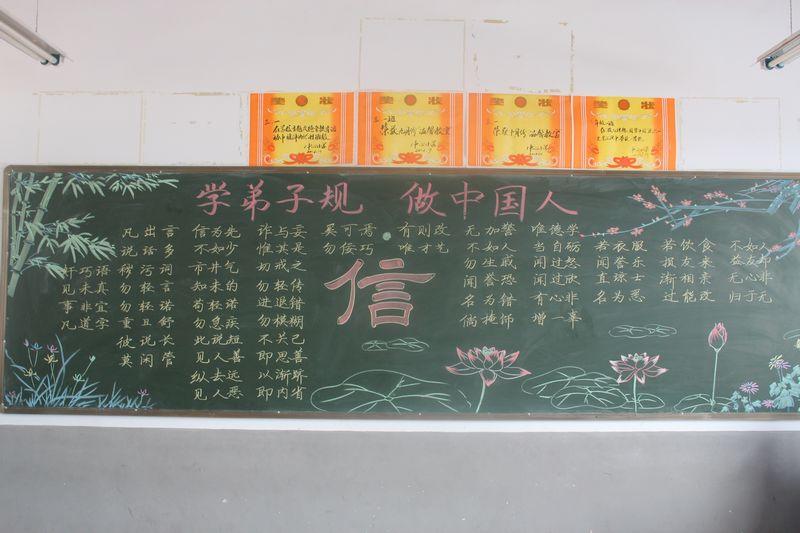 奖状
奖状
奖状
奖状
三·一
一班
三·一
荣获九月份温馨教室
荣获十月份温馨教室
学弟子规 做中国人
凡出言 信为先 诈与妄 奚可焉 有则改 无加警 唯德学
说话多 不如少 惟其是 勿佞巧 唯才艺 不如人 当自砺 若衣服 若饮食 不如人
奸巧语 秽污词 市井气 切戒之 勿生戚 闻过怒 闻誉乐 损友来 益友却
见未真 勿轻言 知未的 勿轻传 闻誉恐 闻过欣 直谅士 渐相亲 无心非
事非宜 勿轻诺 苟轻诺 进退错 名为错 有心非 名为恶 过能改 归于无
凡道字 重且舒 勿急疾 勿模糊 倘掩饰 增一辜
彼说长 此说短 不关己
莫闲管 见人善 即思
纵去远 以渐跻
见人恶 即内省
信